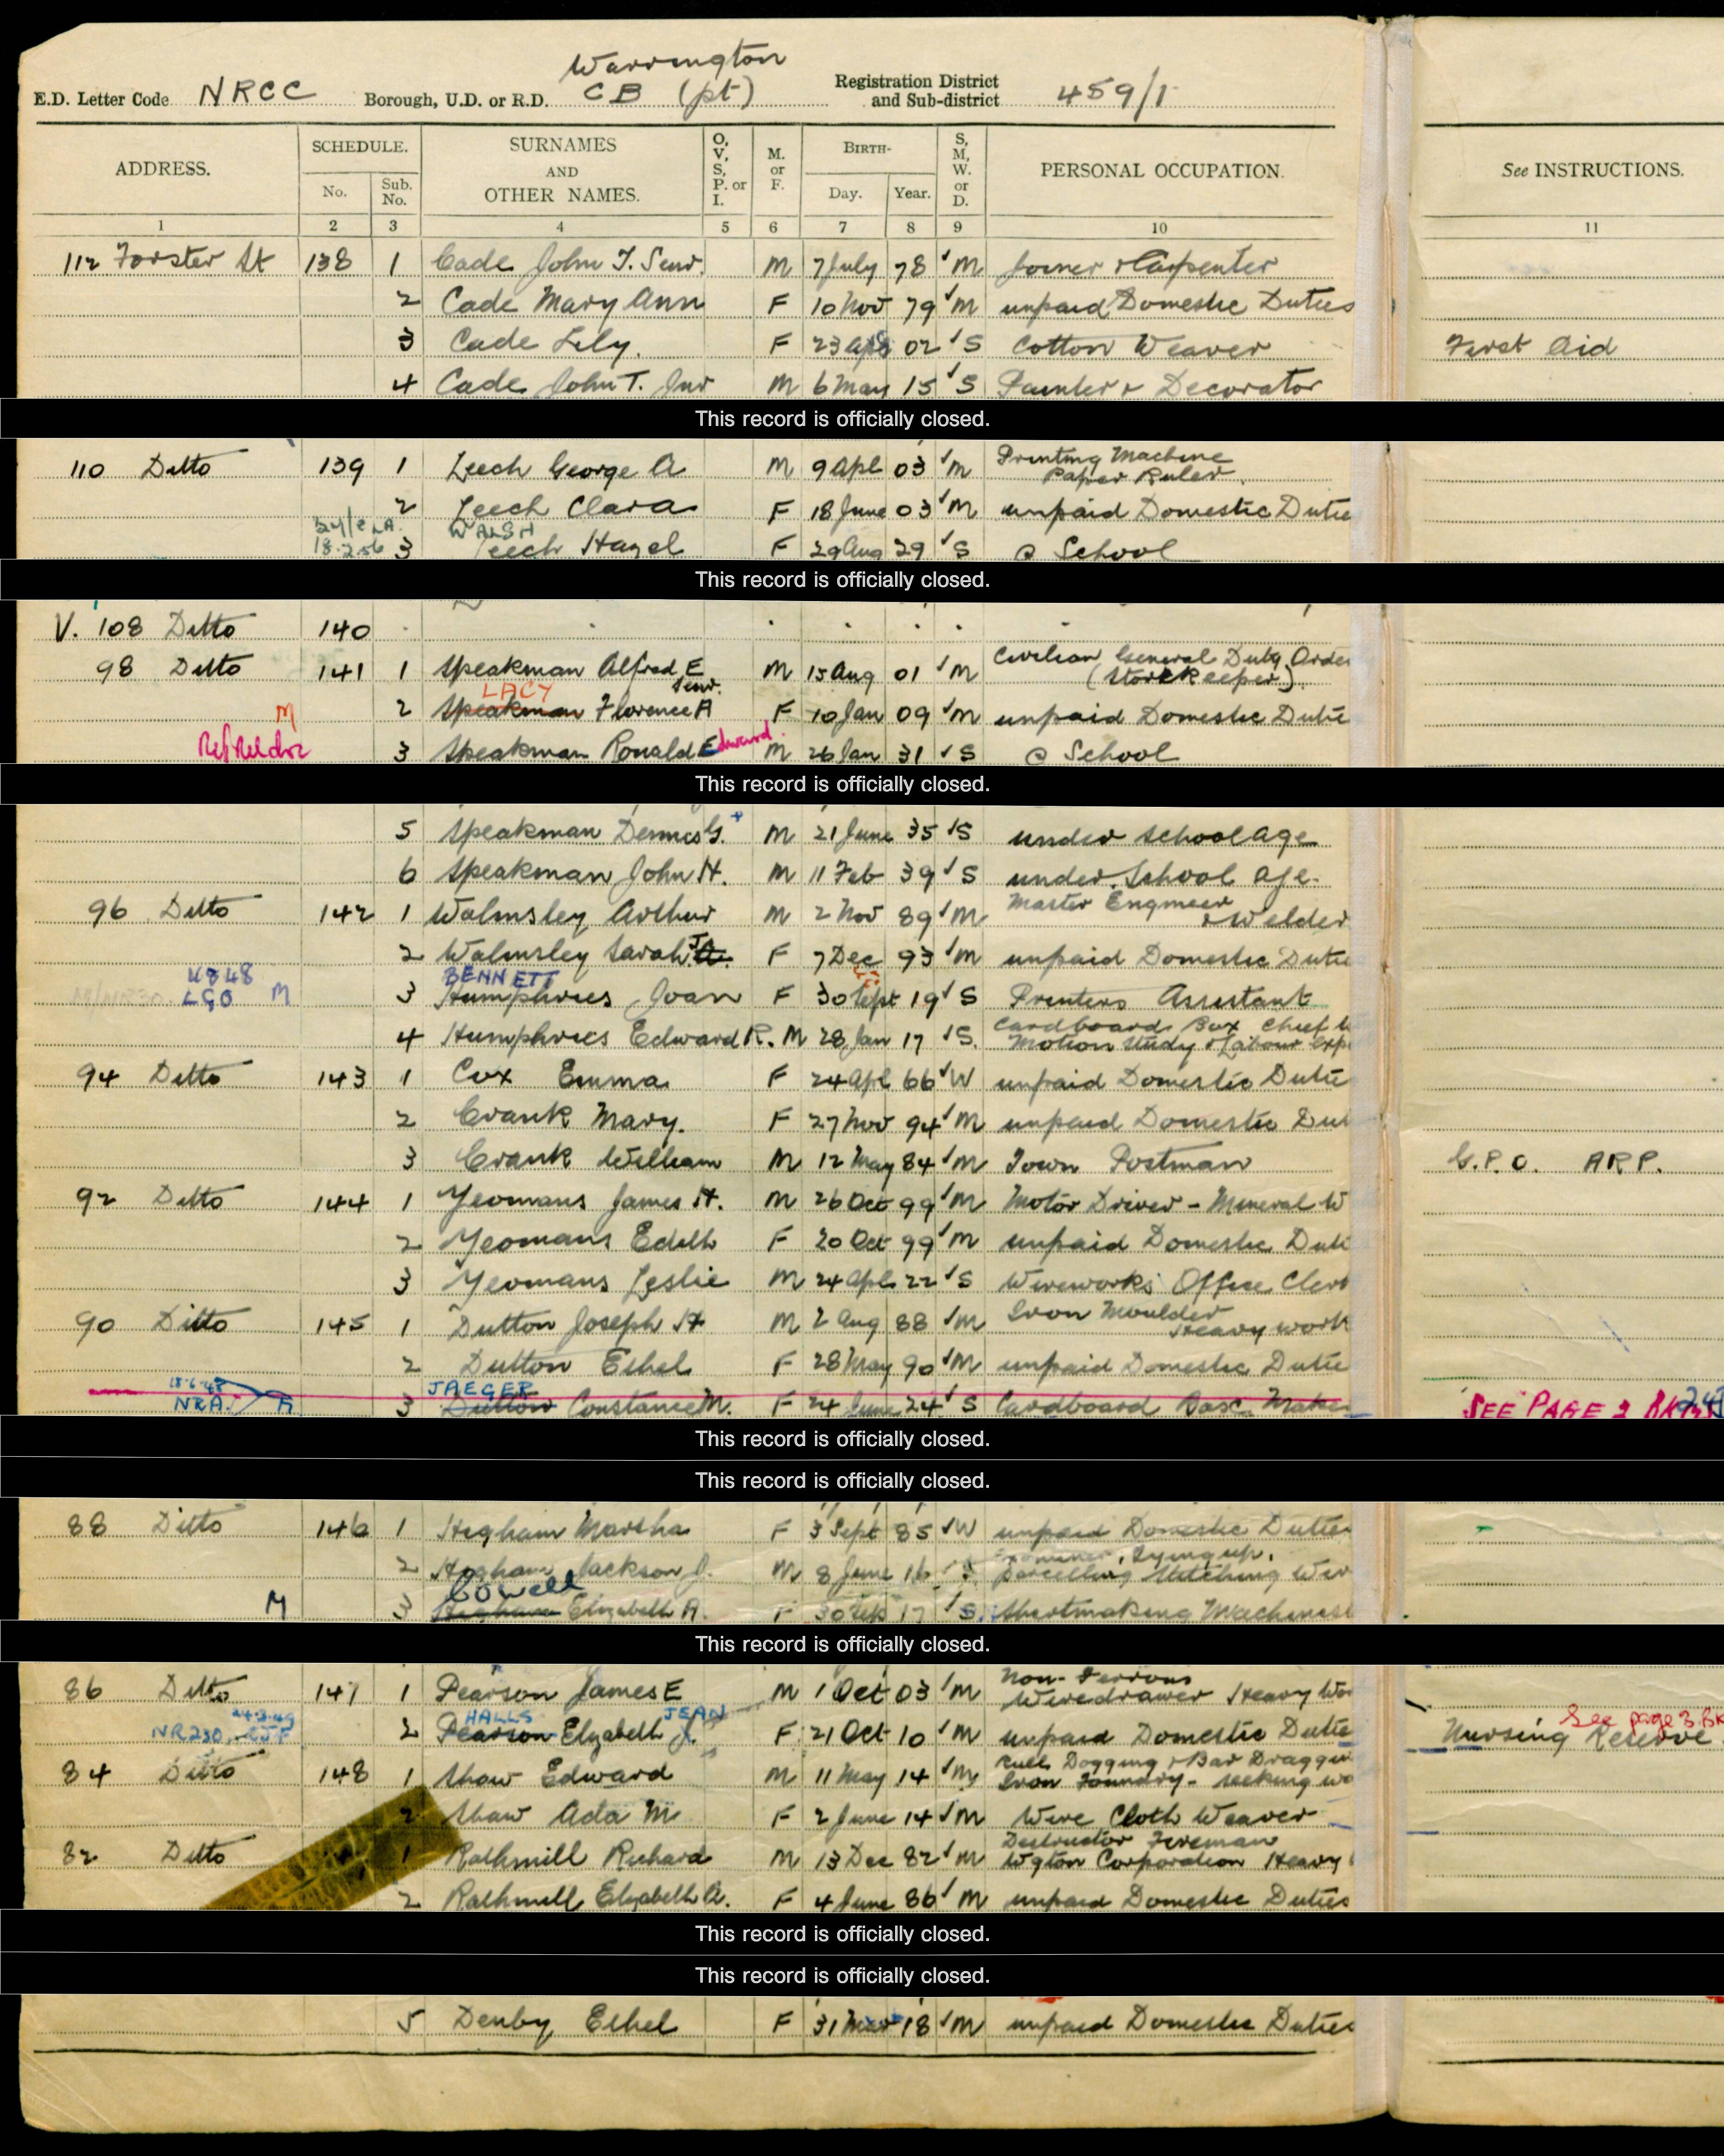 Warrington
E.D. Letter Code NRCC Borough, U.D. or R.D. CB (pt) Registration District and Sub-district 459/1
ADDRESS. SCHEDULE. No. Sub. No. SURNAMES AND OTHER NAMES. O, V, S, P. or I. M. or F. BIRTH- Day. Year. S, M, W. or D. PERSONAL OCCUPATION. See INSTRUCTIONS.
1 2 3 4 5 6 7 8 9 10 11
112 Forster St 138 1 Cade John T. Senr. M 7 July 78 M Joiner & Carpenter
2 Cade Mary Ann F 10 Nov 79 M unpaid Domestic Duties
3 Cade Lily. F 23 Apl 02 S Cotton Weaver First Aid
4 Cade John T. Jnr M 6 May 15 S Painter & Decorator
This record is officially closed.
110 Ditto 139 1 Leech George A M 9 Apl 03 M Printing Machine Paper Ruler.
2 Leech Clara F 18 June 03 M unpaid Domestic Dutie
18.2.56 WALSH
3 Leech Hazel F 29 Aug 29 S @ School
This record is officially closed.
V. 108 Ditto 140
98 Ditto 141 1 Speakman Alfred E Senr. M 15 Aug 01 M Civilian General Duty Order (Storekeeper)
LACY
2 Speakman Florence A F 10 Jan 09 M unpaid Domestic Dutie
M
3 Speakman Ronald Edward M 26 Jan 31 S @ School
This record is officially closed.
5 Speakman Dennis G. M 21 June 35 S under school age
6 Speakman John H. M 11 Feb 39 S under School age.
96 Ditto 142 1 Walmsley Arthur M 2 Nov 89 M Master Engineer & Welder
2 Walmsley Sarah J. F 7 Dec 93 M unpaid Domestic Dutie
LGO M BENNETT
3 Humphries Joan F 30 Sept 19 S Printers Assistant
4 Humphries Edward R. M 28 Jan 17 S. Cardboard Box Chief Motion Study & Labour Exp
94 Ditto 143 1 Cox Emma F 24 Apl 66 W unpaid Domestic Dutie
2 Crank Mary. F 27 Nov 94 M unpaid Domestic Dut
3 Crank William M 12 May 84 M Town Postman G.P.O. ARP.
92 Ditto 144 1 Yeomans James H. M 26 Oct 99 M Motor Driver - Mineral W
2 Yeomans Edith F 20 Oct 99 M unpaid Domestic Duti
3 Yeomans Leslie M 24 Apl 22 S Wireworks Office Clerk
90 Ditto 145 1 Dutton Joseph H M 2 Aug 88 M Iron Moulder Heavy work
2 Dutton Ethel F 28 May 90 M unpaid Domestic Dutie
NRA. JAEGER
3 Dutton Constance M. F 24 June 24 S Cardboard Box Maker SEE PAGE 2
This record is officially closed.
This record is officially closed.
88 Ditto 146 1 Higham Martha F 3 Sept 85 W unpaid Domestic Duties
2 Higham Jackson J. M 8 June 16 S tying up, parcelling stitching Wir
M Cowell
3 Higham Elizabeth A. F 30 Feb 17 S. Shirtmaking Machinist
This record is officially closed.
86 Ditto 147 1 Pearson James E M 1 Oct 03 M Non-Ferrous Wiredrawer Heavy Wor
NR230 24.3.49 HALLS JEAN
2 Pearson Elizabeth J. F 21 Oct 10 M unpaid Domestic Dutie Nursing Reserve See page 3 BK
84 Ditto 148 1 Shaw Edward M 11 May 14 M Bull Dogging & Bar Dragging Iron Foundry - seeking wo
2 Shaw Ada M F 2 June 14 M Wire Cloth Weaver
82 Ditto 1 Rathmill Richard M 13 Dec 82 M Destructor Fireman Wgton Corporation Heavy
2 Rathmill Elizabeth A. F 4 June 86 M unpaid Domestic Duties
This record is officially closed.
This record is officially closed.
5 Denby Ethel F 31 Mar 18 M unpaid Domestic Duties